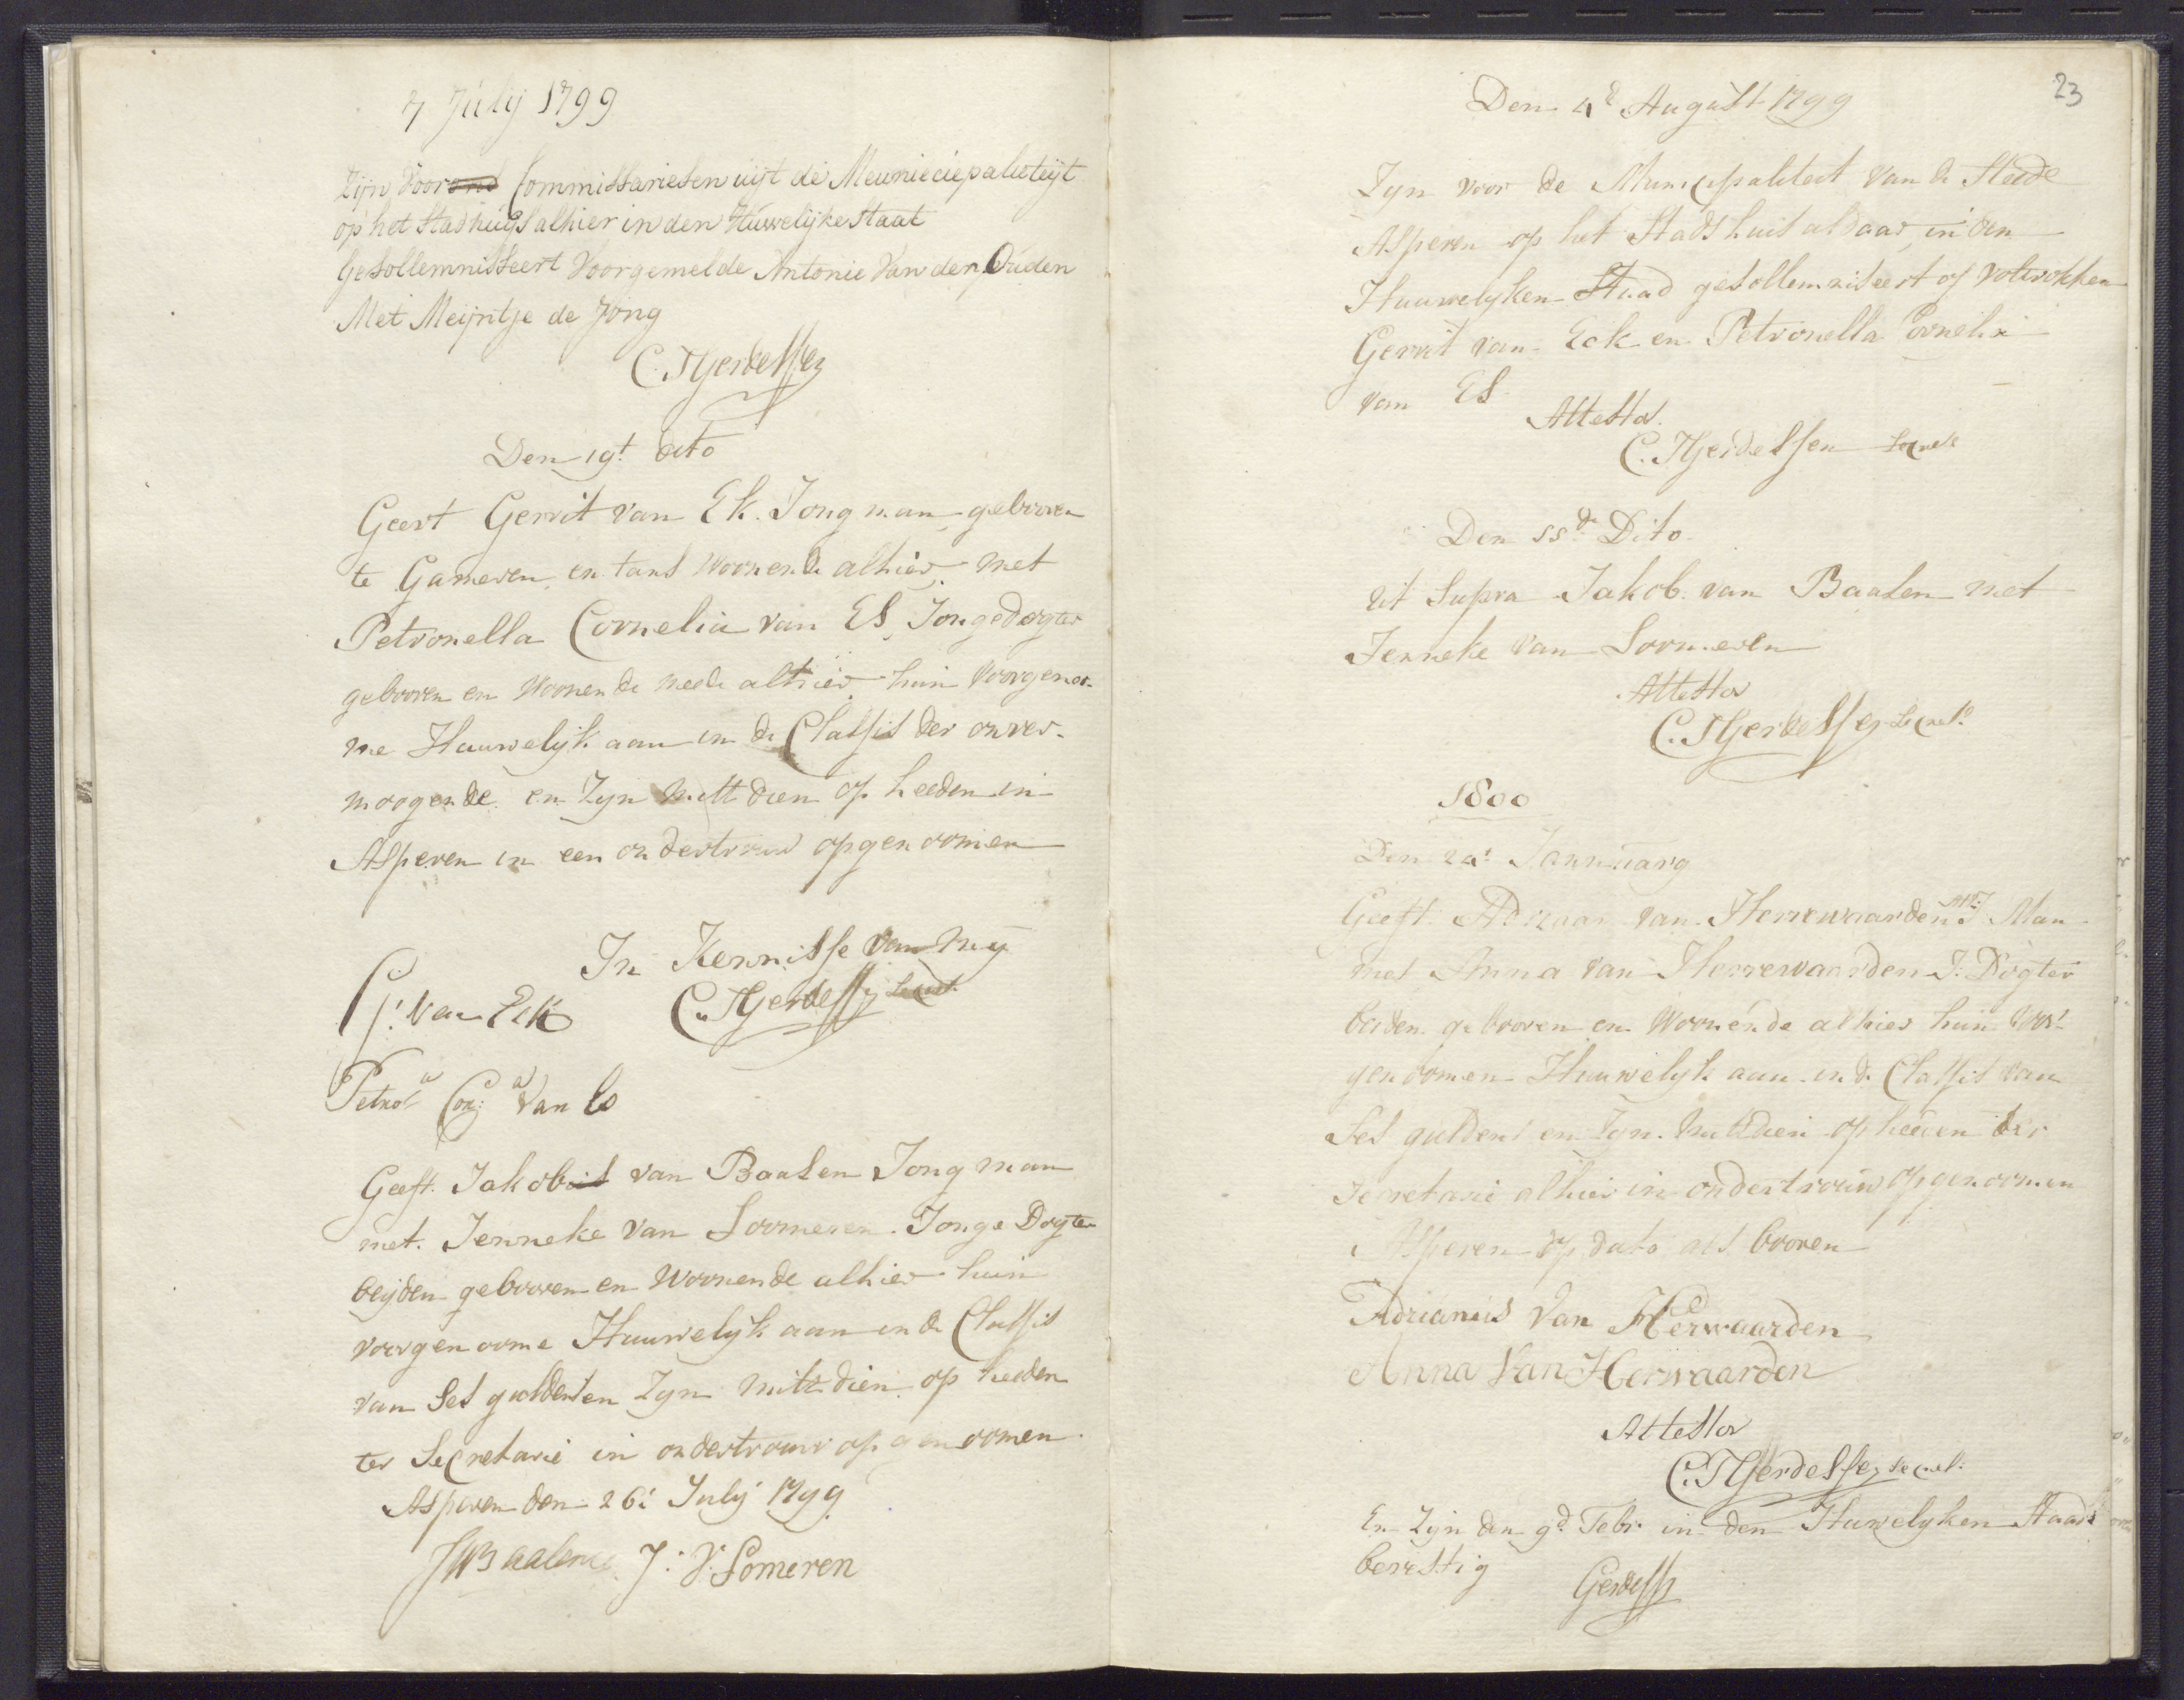 7 Julij 1799
Zijn Voor ons Commissariesen uijt de Meunieciepaliteijt
op het Stadhuijs alhier in den Huwelijke Staat
Gesollemnisseert Voorgemelde Antonie Van der Ouden
Met Meijntje de Jong
Den 19t dito
Geeft Gerrit van Ek. Jongman gebooren
te Gameren, en tans Woonende alhier, met
Petronella Cornelia van Es, Jongedogter
gebooren en Woonende mede alhier, hun voorgenoo-
me Huuwelijk aan in de Classis der onver-
moogende en Zyn mitt dien op heeden in
Asperen in een ondertrouw opgenoomen
In Kennisse van my
G: Van Eck
Petrola Cora Van Es
Geeft Jakobus van Baalen Jongman
met Jenneke van Soomeren Jonge Dogter
beijden gebooren en Woonende alhier hun
voorgenoome Huuwelyk aan in de Classis
van Ses guldens en Zyn mits dien op heeden
ter Secretarie in ondertrouw opgenoomen
Asperen den 26: July 1799
J V Baalen J: V: Someren
23
Den 4e August 1799
Zyn voor de Municipaliteit van de Steede
Asperen op het Stadshuis aldaar, in den
Huuwelyken Staad gesollemniseert of voltrokken
Gerrit van Eck en Petronella Cornelia
van ES
Attestor
C. HGerdessen Secret
Den 11de Dito
Ut Supra Jakob van Baalen met
Jenneke van Soomeren
Attestor
C. HGerdessen Secret:
1800
Den 24: Januuary
Geeft Adriaan van Herrewaarden J Man
met Anna van Herrewaarden J: Dogter
beiden gebooren en Woonende alhier hun voor
genoomen Huuwelyk aan in de Classis van
Ses guldens en Zyn mitsdien op heeden ter
Secretarie alhier in ondertrouw opgenoomen
Asperen op dato als booven
Adrianus Van Herwaarden
Anna Van Herwaarden
Attestor
C. HGerdessen Secret:
En Zyn den 9d Febr: in den Huwelyken Staad
bevestig
Gerdessen